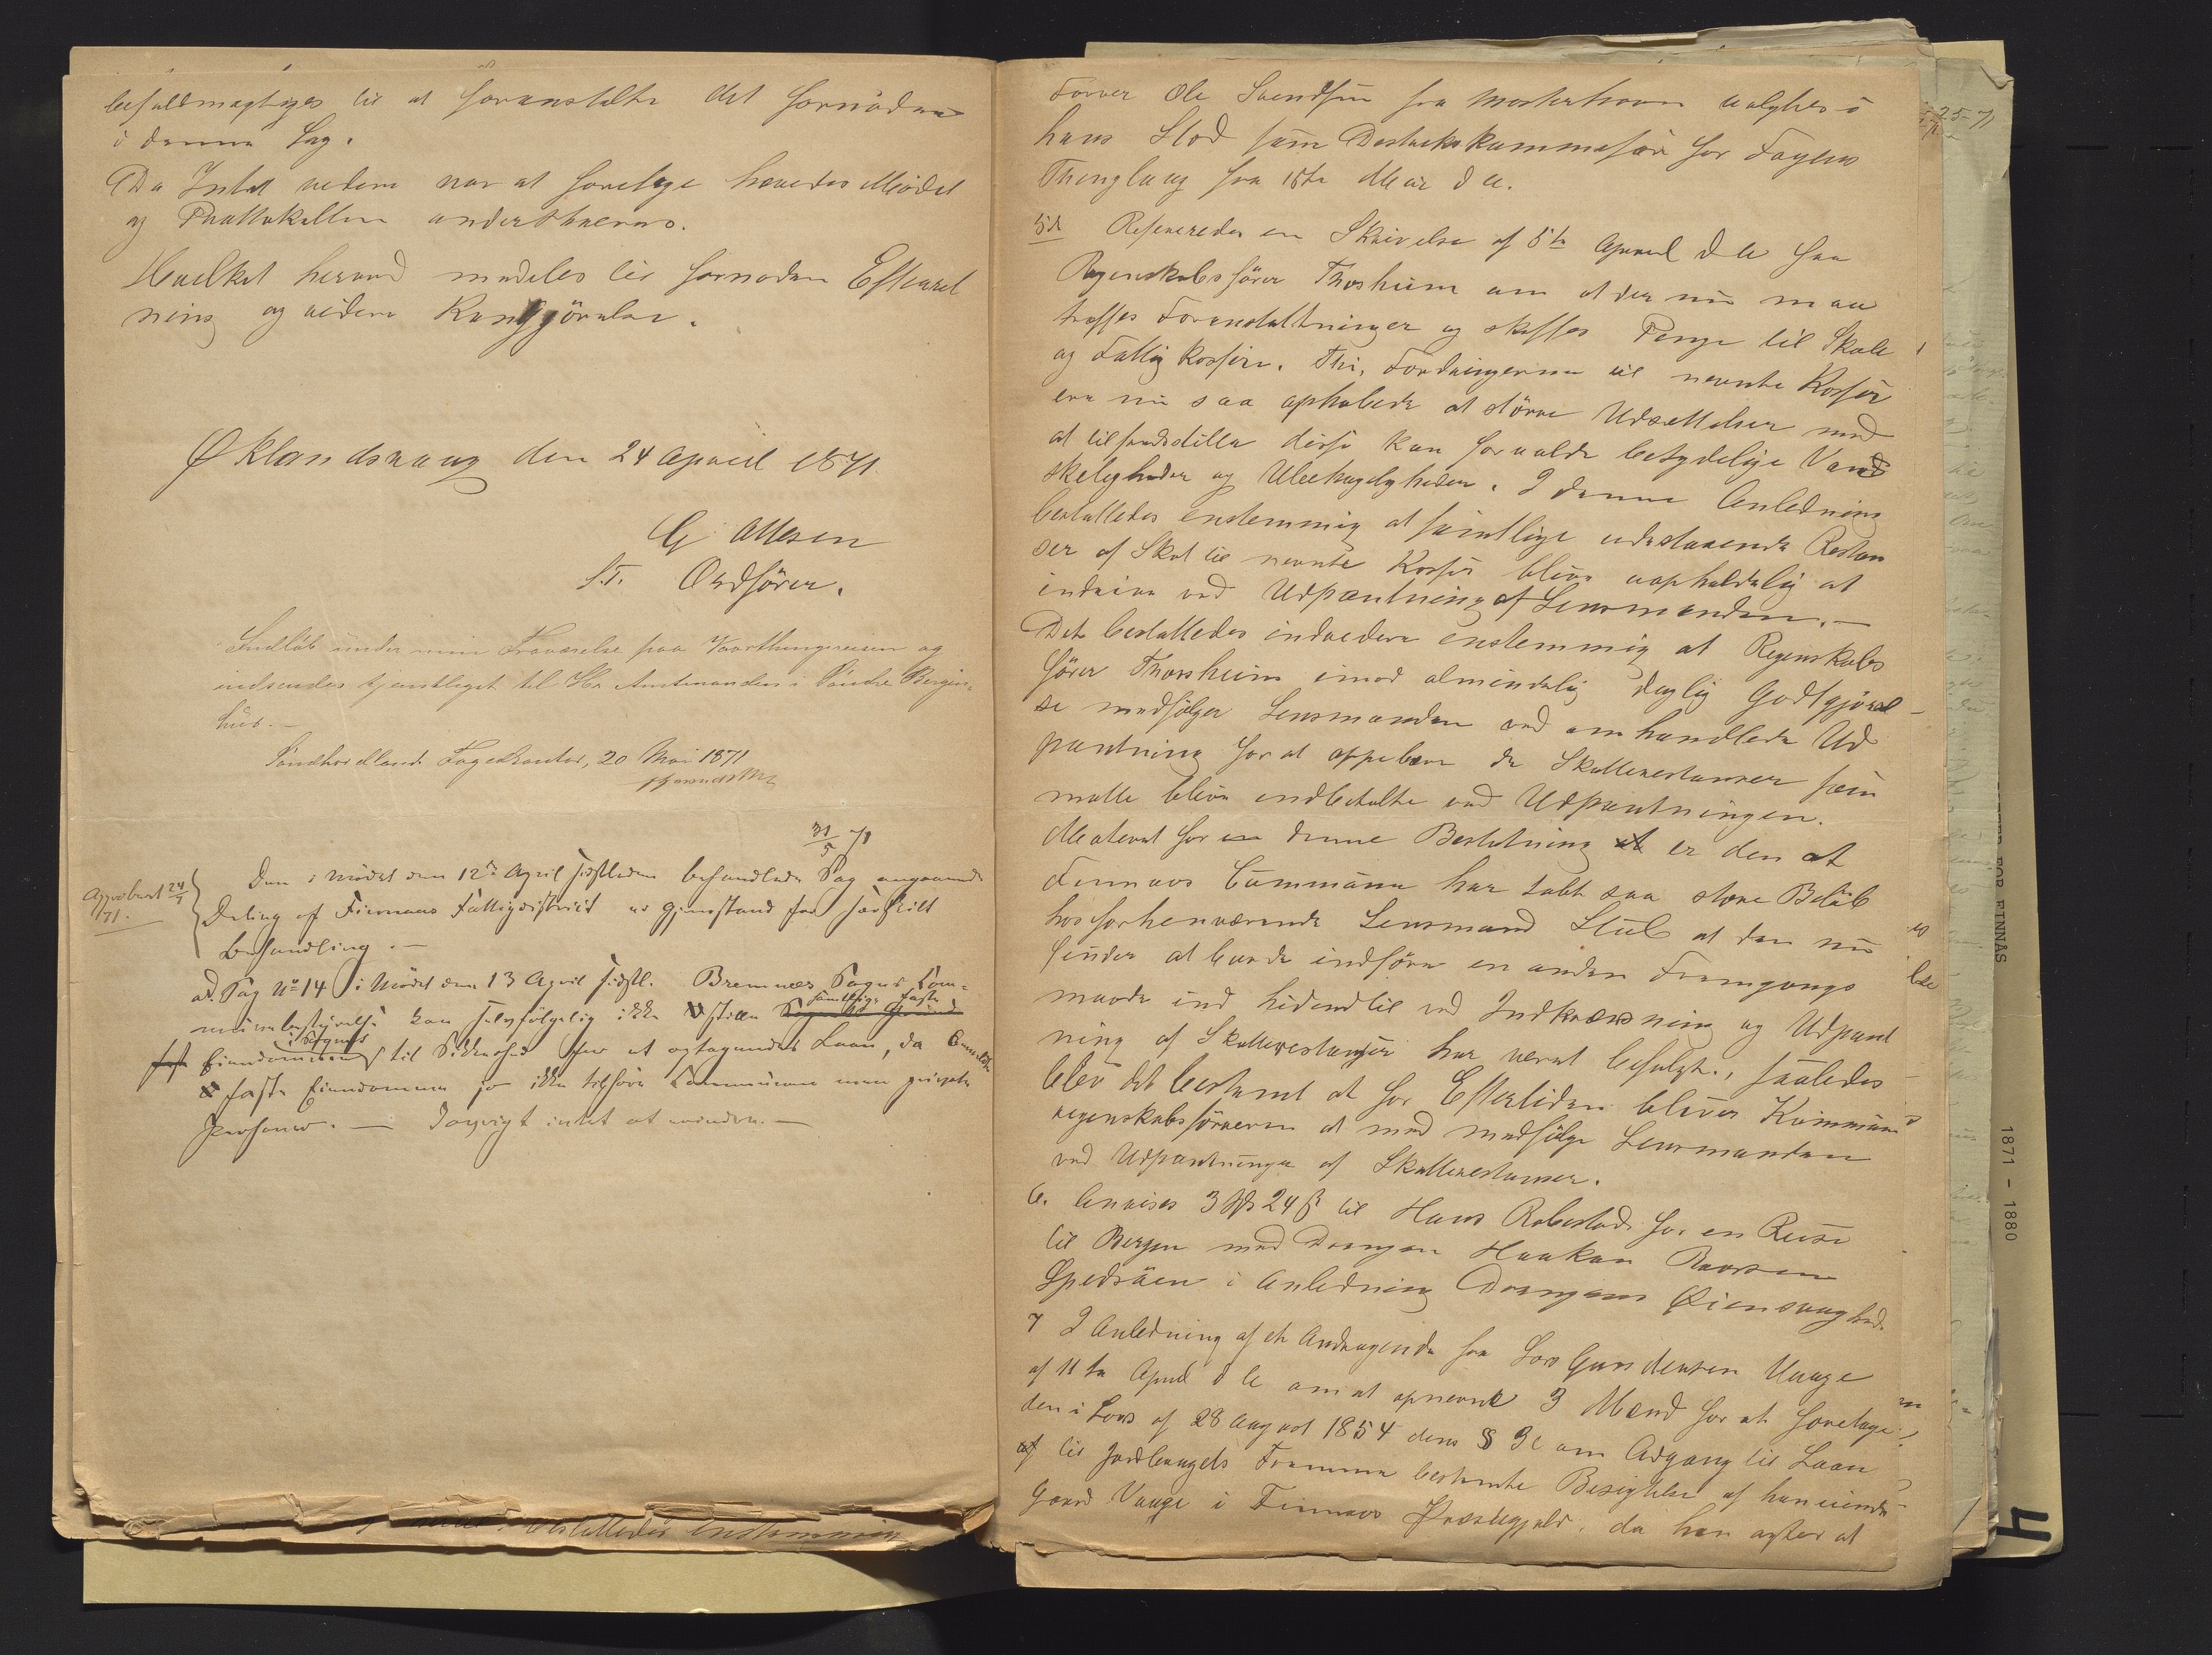 befuldmægtiges til at foranstalte det fornødne
i denne Sag.
Da Intet videre var at foretage hævedes Mödet
og Prottokollen underskreves.
Hvilket herved medeles til fornöden Efteret
ning og videre Kungjörelse.
Øklandsvaag den 24 April 1871
G Ottesen
f.T. Ordförer.
Indløb under min Fraværelse paa Vaarthingsreisen og
indsendes tjenstligst til Hr Amtmanden i Söndre Bergen-
hus.-
Söndhordlands Fogedkontor, 20 Mai 1871
31/5 71
Approbert 24/4
71.
Den i mödet den 12te April sidstleden behandlede Sag angaaende
Deling af Finnaas Fattigdistrict er Gjenstand for særskilt
Behandling.-
ad. Sag No 14 i Mödet den 13 April sidstl. Bremnes Sogns Com-
samtlige faste
munebestyrelse kan selvfølgelig ikke stille
i Sognet
Eiendomme til Sikkerhed for et optagendes Laan, da
faste Eiendomme jo ikke tilhöre Kommunen men private
Personer. — Forøvrigt intet at erindre.—
bestalledes enstemmig
Farver Ole Svendsen fra Mosterhavn valgtes i
hans Sted som Distrikskommesær for Föyens
Thinglaug fra 15te Mai d A.
5te Refereredes en Skrivelse af 5te April d A fra
Regenskabsförer Thorsheim om at der nu maa
træffes Foranstaltninger og skaffes Penge til Skole
og Fattig Kassen. Thi, Fordringerne til nevnte Kasser
ere nu saa ophobede at störe Udsættelser med
at tilfredsstille disse kan forvolde betydelige Vand
skeligheder og Ubehageligheder. I denne Anledning
besluttedes enstemmig at samtlige udestaaende Restan
ser af Skat til nevnte Kasser blive uopholdelig at
inddrive ved Udpantning af Lensmanden.—
Det besluttedes indvidere enstemmig at Regenskabs
förer Thorsheim imod almindelig daglig Godtgjörel-
se medfølger Lensmanden ved omhandlede Ud
pantning for at oppebære de Skatterestanser som
maatte blive indbetalte ved Udpantningen.
Motivet for denne Beslutning er den at
Finnaas Commune har tabt saa store Belöb
hos forhenværende Lensmand Stub at den nu
finder at burde indföre en anden Fremgangs
maade end hidindtil ved Indkrævning og Udpant
ning af Skatterestanser har været befulgt., saaledes
blev det bestemt at for Eftertiden bliver Kommune
regenskabsföreren at med medfølge Lensmanden
ved Udpantninger af Skatterestanser.
6. Anvises 3 Spd 24 ß til Hans Robestad for en Reise
til Bergen med Drengen Haakon
Spedsöen i Anledning Drengens Øiensvaghed.
7 I Anledning af et Andragende fra Lars Gundersen Vaage
af 11te April d A om at opnevne 3 Mænd for at foretage
den i Lov af 28 August 1854 dens § 3 om Adgang til Laan
af til Jordbrugets Fremme bestemte Besigtelse af
Gaard Vaage i Finnaas Præstegjeld. da han agter at
25-71
FINNÅS
1871 - 1880
4